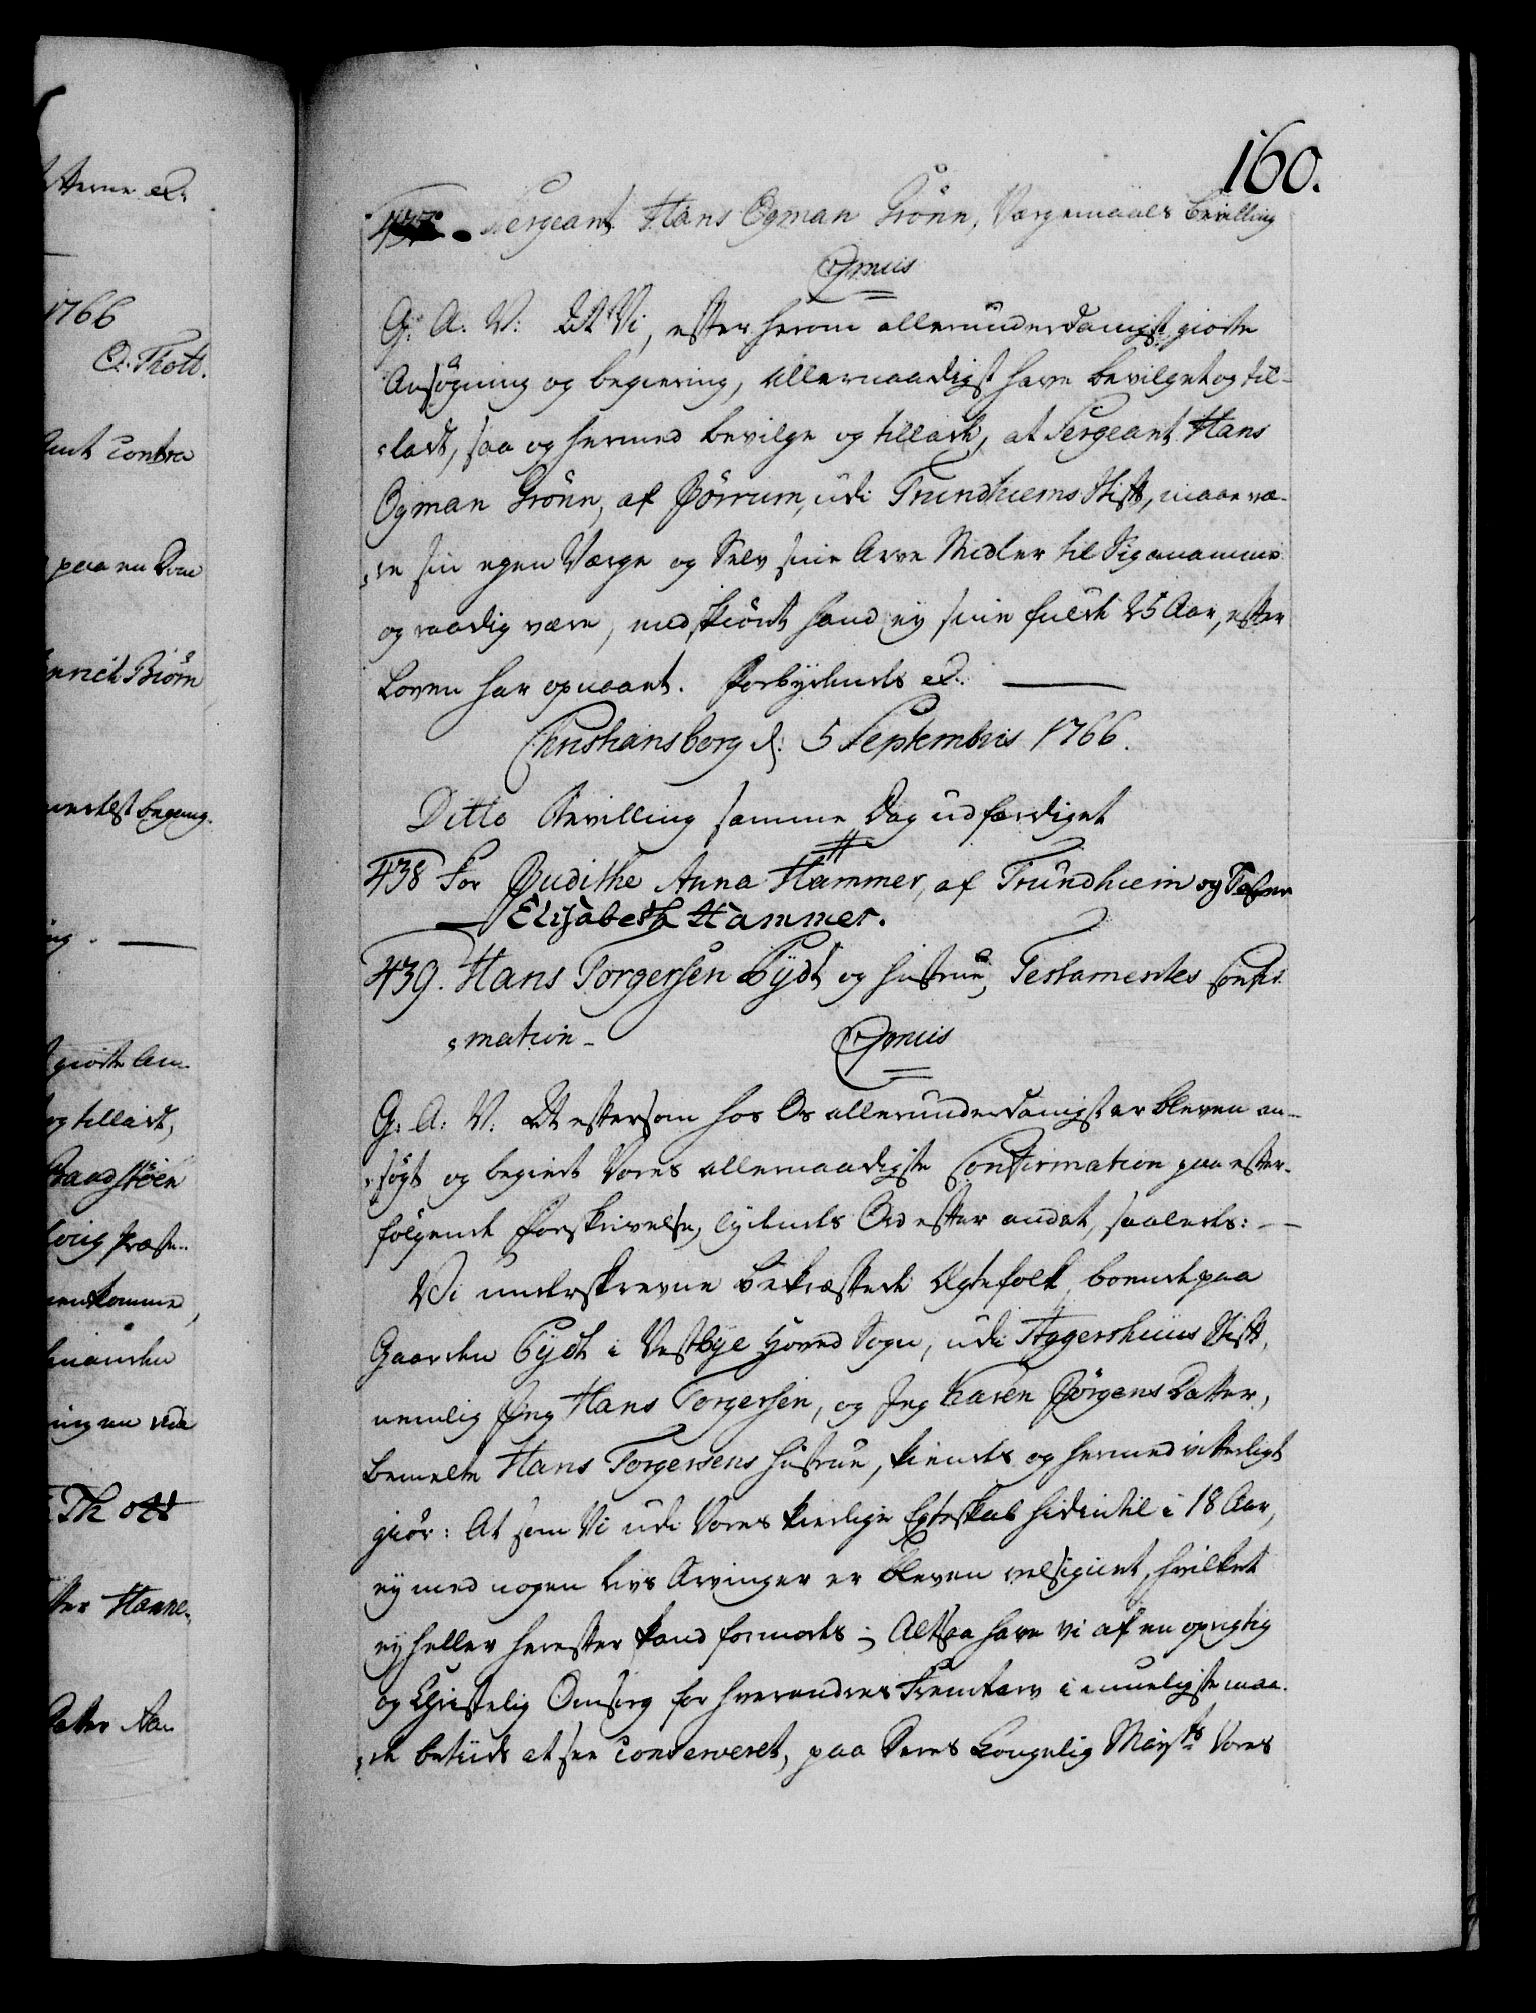 160.
437. Sergeant Hans Ogman Grönn,Værgemaals Bevilling
Gratis
G: A: V: At Vi, efter herom allerunderdanigst giorte
Ansøgning og begiering, allernaadigst have bevilget og til-
ladt, saa og hermed bevilge og tillade, at Sergeant Hans
Ogman Grönn, af Jörrum, udi Trundhiems Stift, maae væ-
re sin egen Værge og Selv sine Arve Midler til Sig anamme
og raadig være, endskiönt hand ey sine fulde 25 Aar, efter
Loven har opnaaet. Forbydends etc.
Christiansborg d: 5 Septembris 1766.
Ditto Bevilling samme Dag udfærdiget
438 For Judithe Anna Hammer, af Trundhiem og
Elisabeth Hammer.
439. Hans Torgersen Bydt og Hustrue, Testamentes Confir
mation. Gratis
G: A: V. At eftersom hos Os allerunderdanigst er bleven an-
søgt og begiert Vores allernaadigste Confirmation paa efter-
følgende Forskrivelse, lydends Ord efter andet, saaleds:
Vi underskrevne bekræftede Egtefolk, boende paa
Gaarden Bydt i Vestbye Hoved Sogn, udi Aggershuus Stift,
nemlig Jeg Hans Torgersen, og Jeg Karen Jörgens Datter,
bemelte Hans Torgersens Hustrue, kiends og hermed vitterligt
giör: At som Vi udi Vores kierlige Egteskab hidindtil i 18 Aar,
ey med nogen Livs Arvinger er bleven velsignet, hvilket
ey heller herefter kand formodes; Altsaa have vi af en oprigtig
og Christelig Omsorg for hverandres Fremtarv i mueligste maa-
de betids at see conserveret, paa Deres Kongelig Mayts Vores